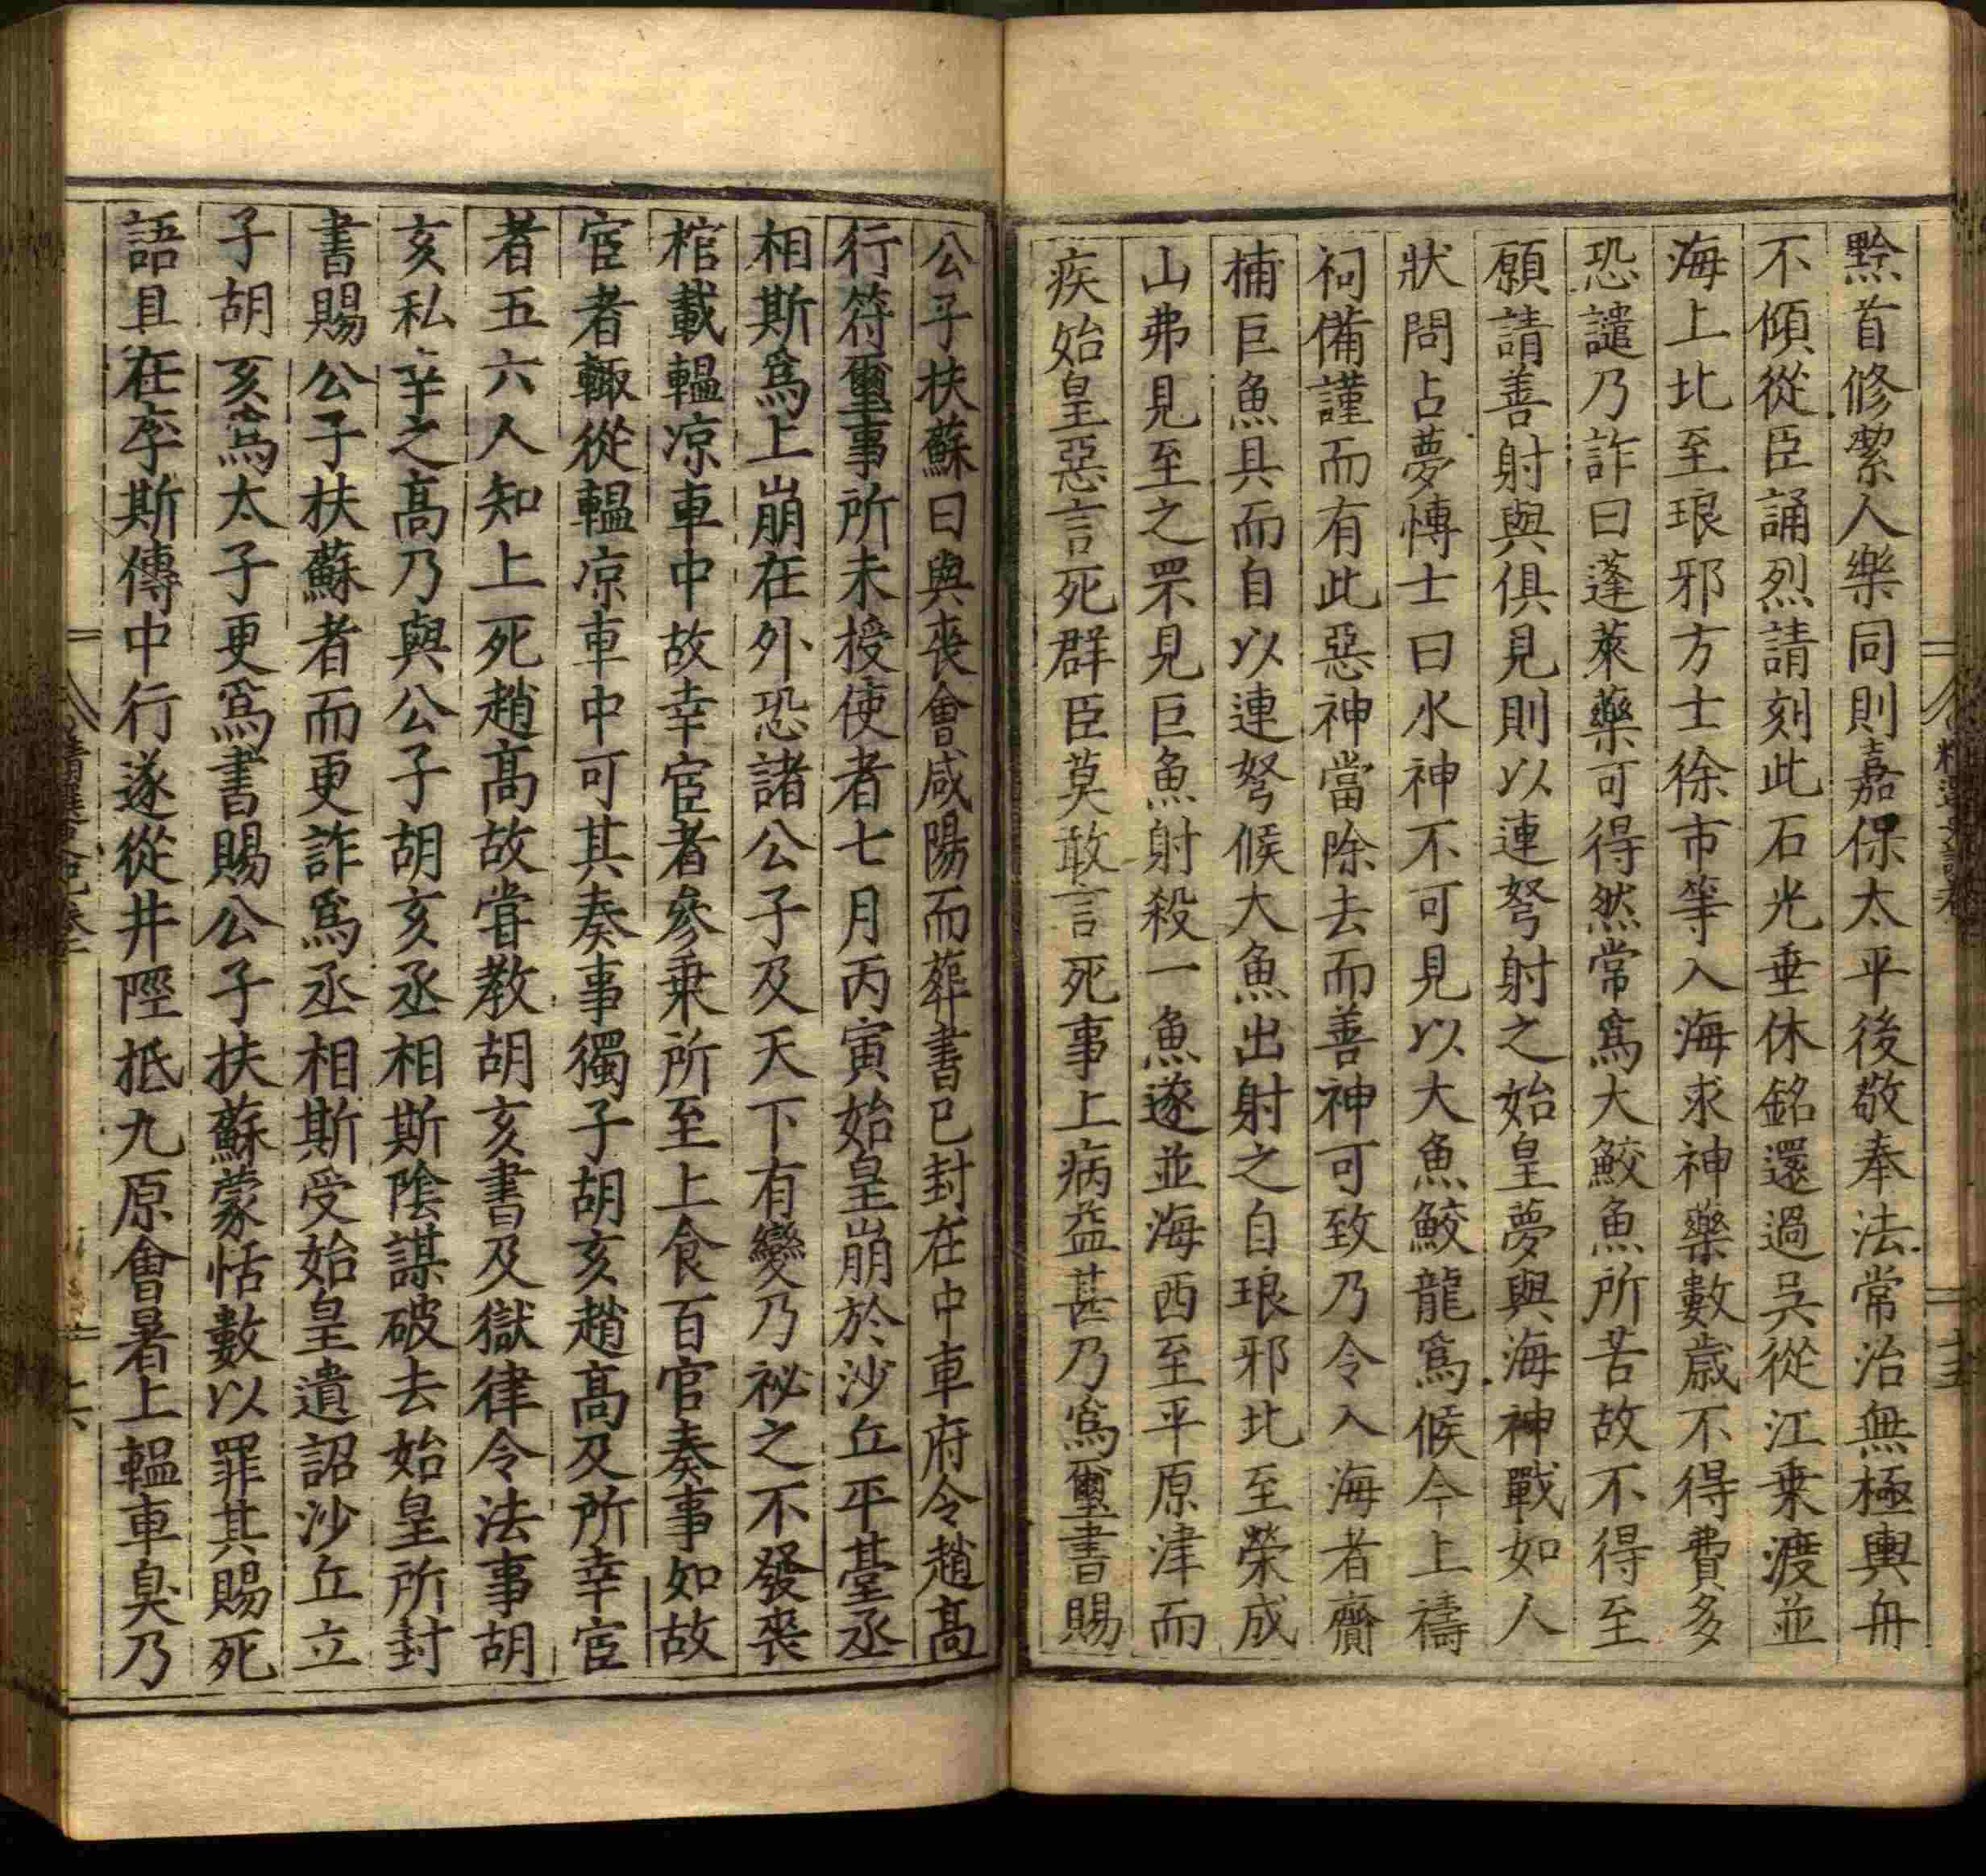 黔首修絜人樂同則嘉保太平後敬奉法常治無極輿舟
不傾從臣誦烈請刻此石光垂休銘還過吳從江乗渡並
海上北至琅邪方士徐市等入海求神藥數歲不得費多
恐譴乃詐曰蓬萊藥可得然常爲大鮫魚所苦故不得至
願請善射與俱見則以連弩射之始皇夢與海神戰如人
狀問占夢愽士曰水神不可見以大魚鮫龍爲候今上禱
祠備謹而有此惡神當除去而善神可致乃令入海者齎
捕巨魚具而自以連弩候大魚出射之自琅邪北至榮成
山弗見至之罘見巨魚射殺一魚遂並海西至平原津而
疾始皇惡言死群臣莫敢言死事上病益甚乃爲璽書賜
公子扶蘇曰與喪會咸陽而葬書已封在中車府令趙髙
行符璽事所未授使者七月丙寅始皇崩於沙丘平臺丞
相斯爲上崩在外恐諸公子及天下有變乃祕之不發喪
棺載轀凉車中故幸宦者參乗所至上食百官奏事如故
宦者輙從轀凉車中可其奏事獨子胡亥趙髙及所幸宦
者五六人知上死趙髙故甞教胡亥書及獄律令法事胡
亥私幸之髙乃與公子胡亥丞相斯隂謀破去始皇所封
書賜公子扶蘇者而更詐爲丞相斯受始皇遺詔沙丘立
子胡亥爲太子更爲書賜公子扶蘇蒙恬數以罪其賜死
語具在李斯傳中行遂從井陘抵九原會暑上轀車臭乃
精選史記卷二